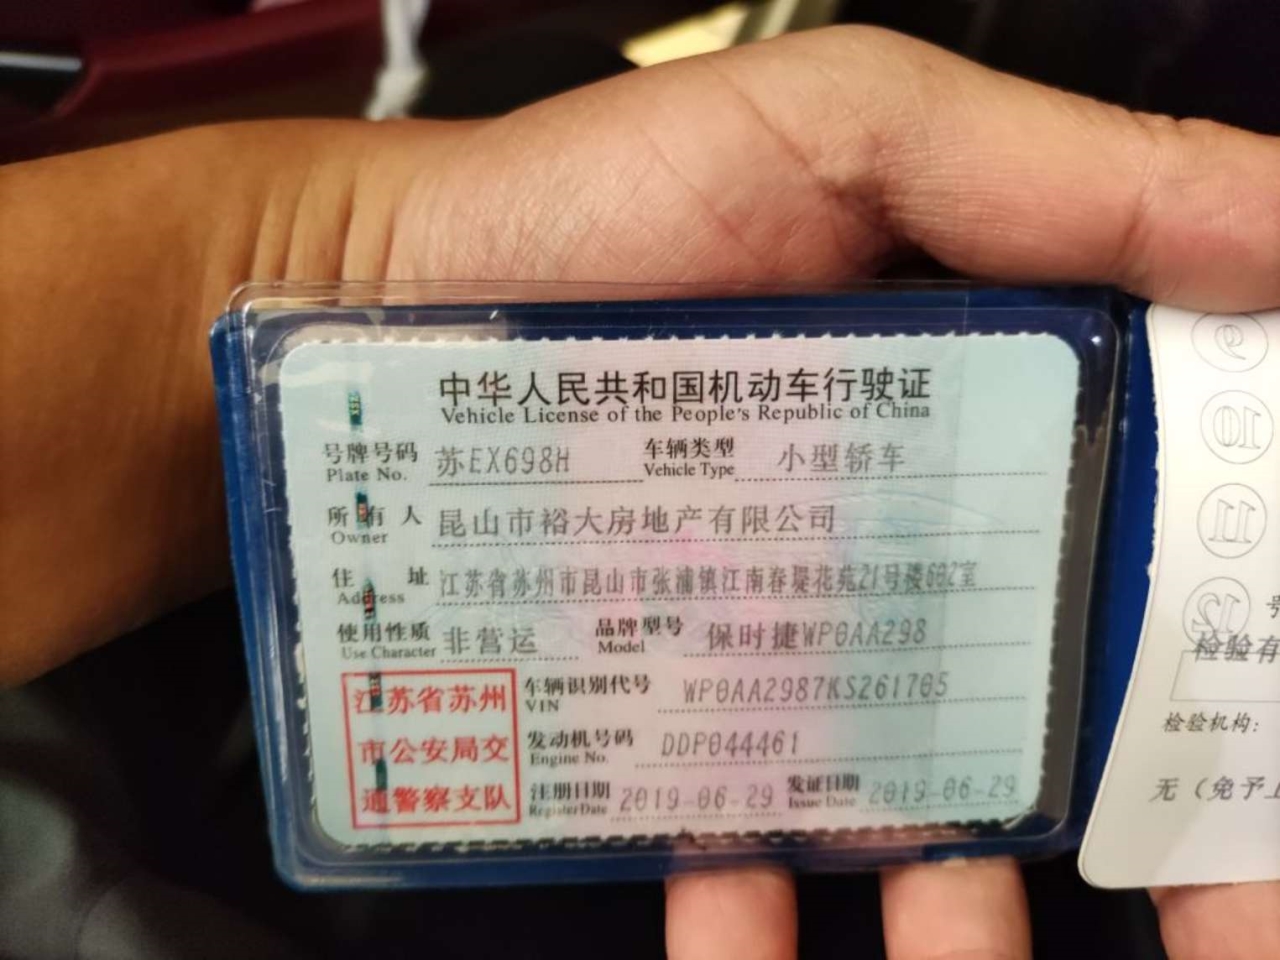 中华人民共和国机动车行驶证
Vehicle License of the People's Republic of China
号牌号码 苏EX698H 车辆类型 小型轿车
Plate No. Vehicle Type
所有人 昆山市裕大房地产有限公司
Owner
住址 江苏省苏州市昆山市张浦镇江南春堤花苑21号楼602室
Address
使用性质 非营运 品牌型号 保时捷WP0AA298
Use Character Model
江苏省苏州
市公安局交
通警察支队
车辆识别代号 WP0AA2987KS261705
VIN
发动机号码 DDP044461
Engine No.
注册日期 2019-06-29 发证日期 2019-06-29
Register Date Issue Date
9
10
11
12
号
检验有
检验机构:
无（免予上